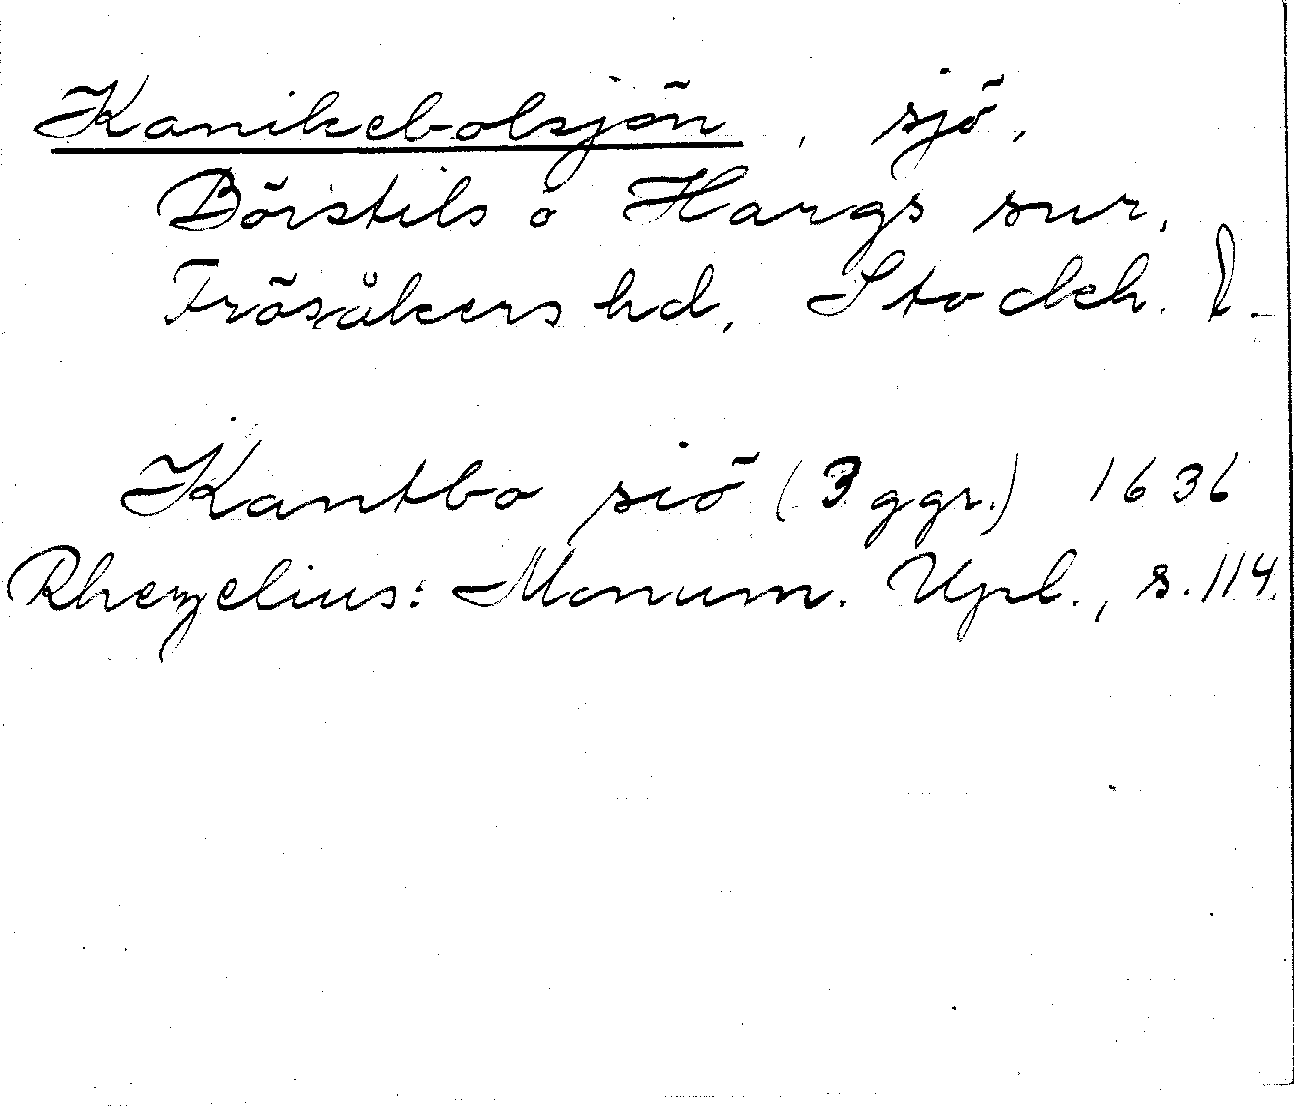 Kanikebolsjön, sjö,
Börstils o Hargs snr,
Frösåkers hd, Stockh. l.
Kantbo siö (3 ggr.) 1636
Rhezelius: Monum. Upl., s. 114.